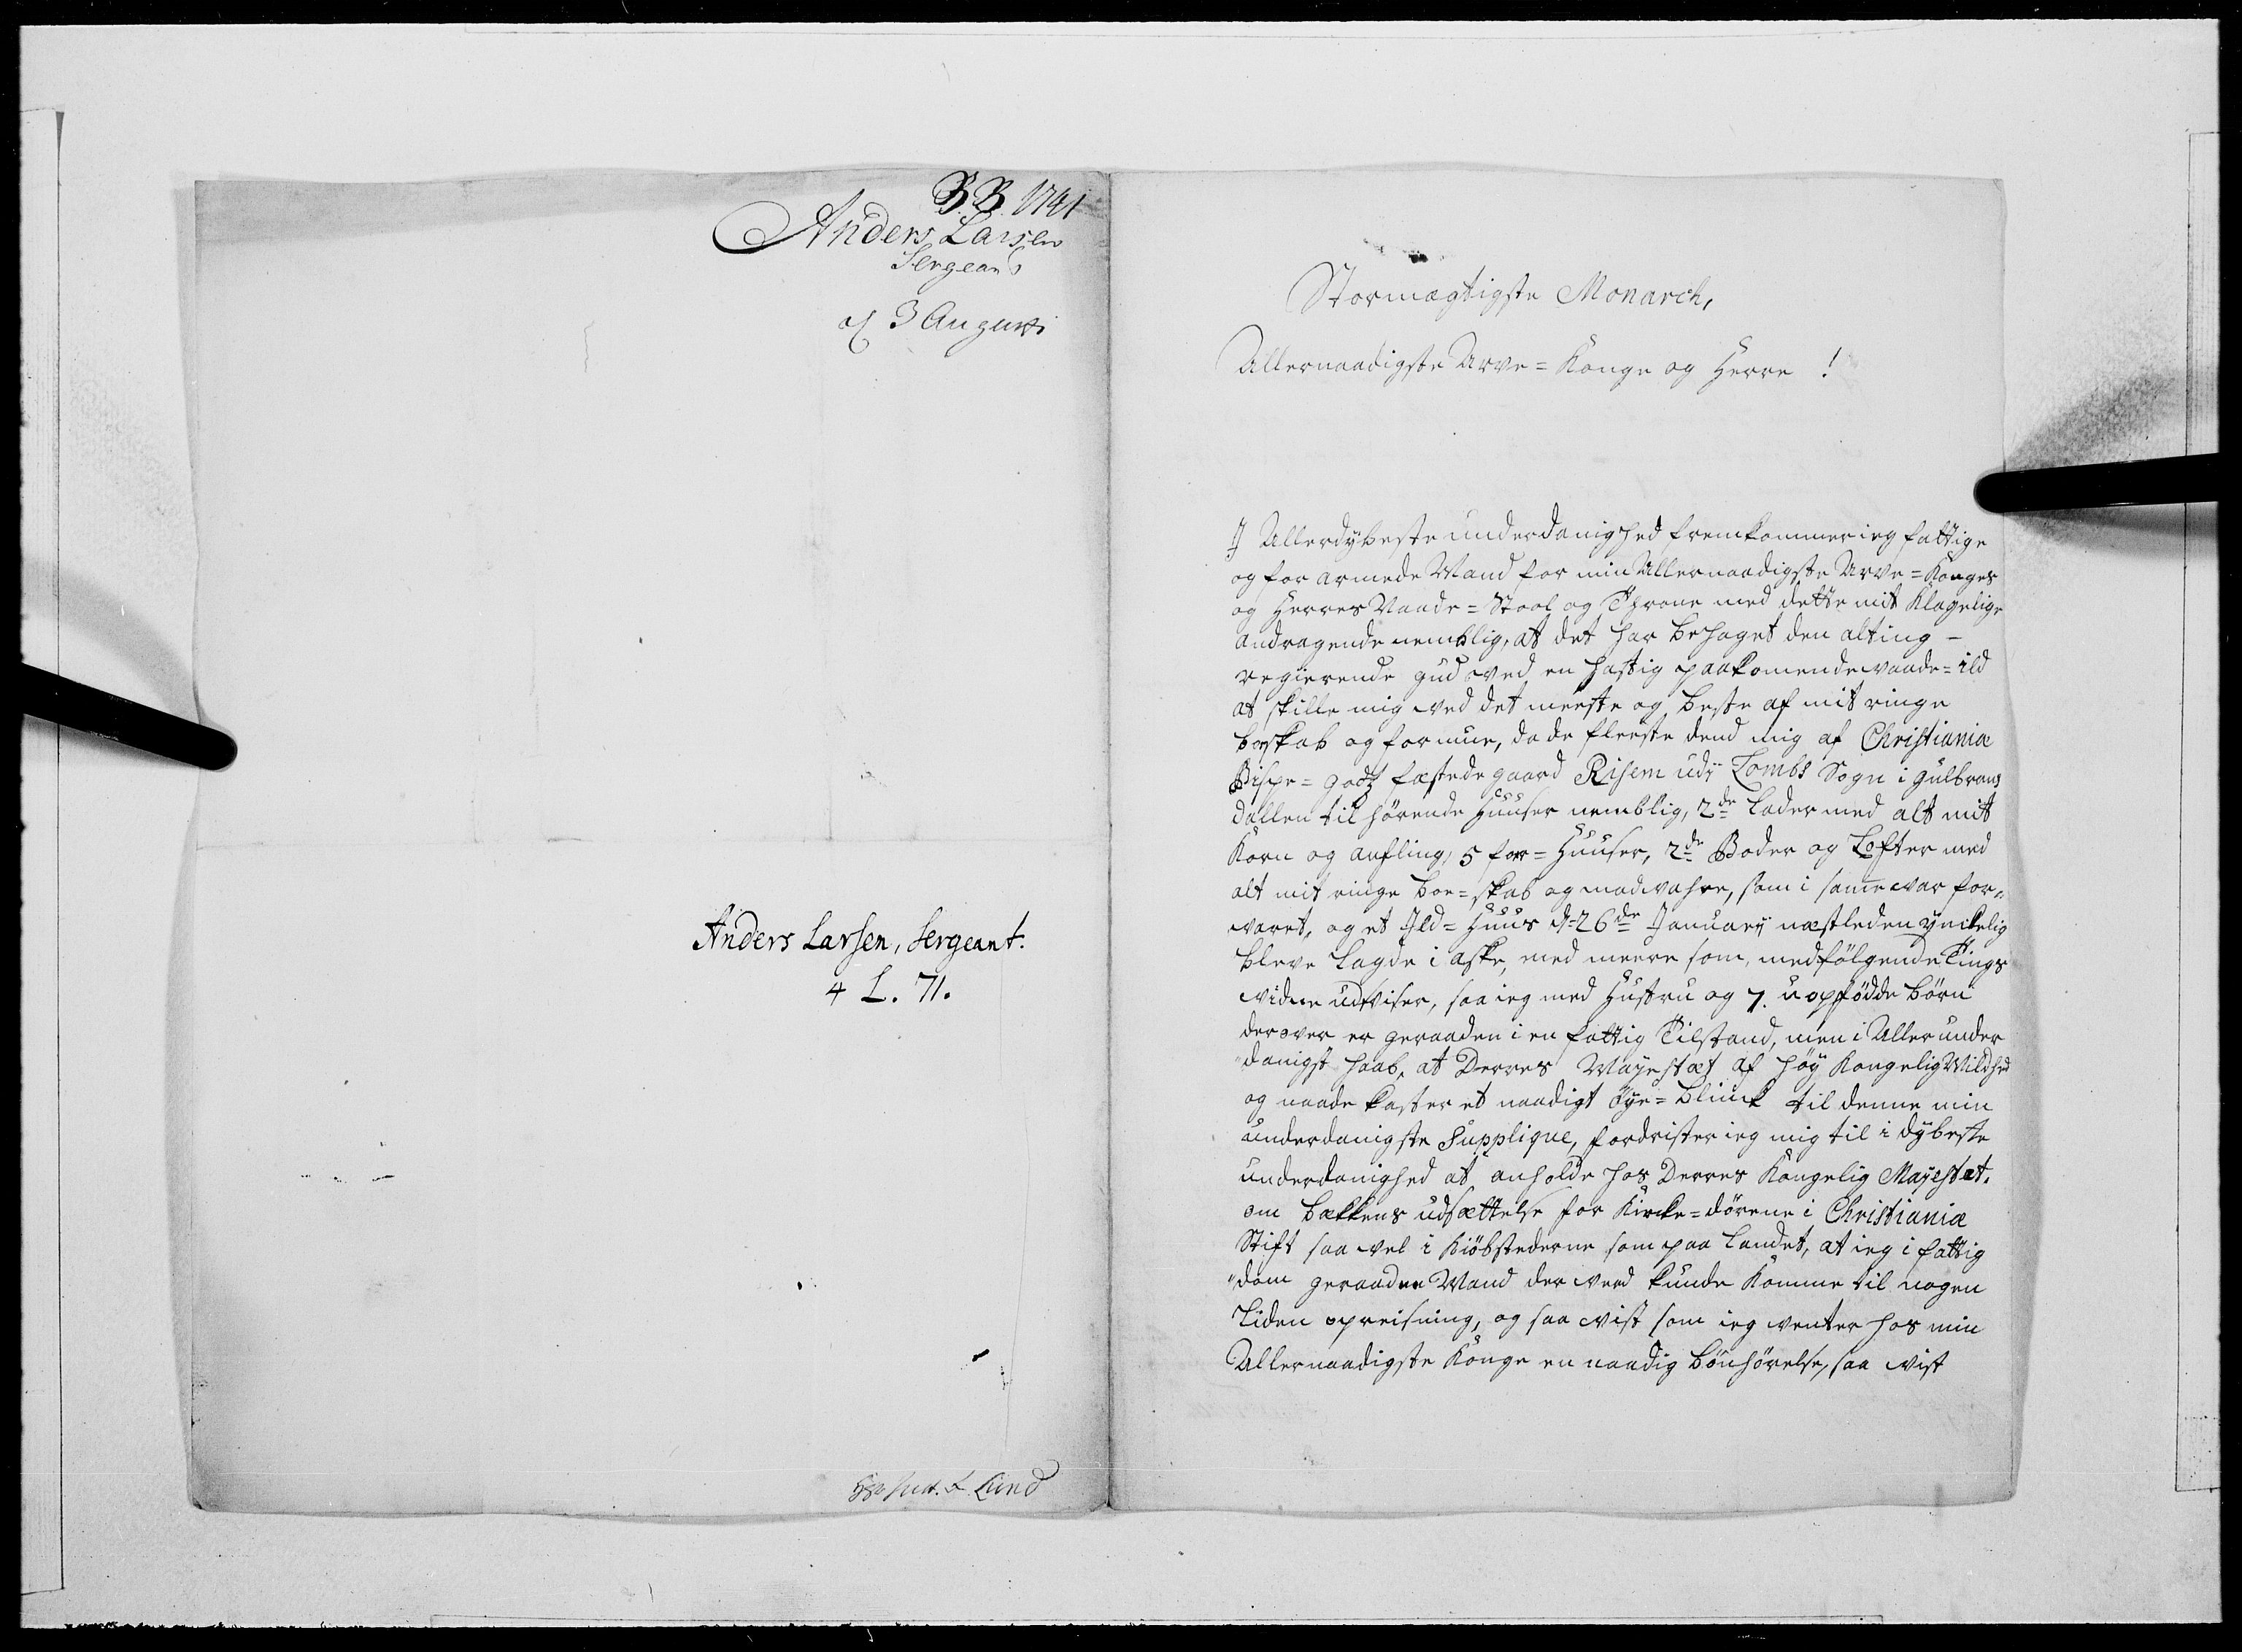 B.B. 1741
Anders Larsen
Sergeant
af 3 Augusti
Anders Larsen, Sergeant.
4 L. 71.
Lund
Stormægtigste Monarch,
Allernaadigste Arve=Konge og Herre !
I Allerdybeste underdanighed fremkommer ieg fattige
og for armede Mand for min Allernaadigste Arve=Konges
og Herres Naade=Stool og Throne med dette mit Klagelige
andragende nemblig, at det har behaget den alting-
regierende gud ved en hastig paakomende vaade=ild
at skille mig ved det meeste og beste af mit ringe
boeskab og formue, da de fleeste dend mig af Christianiæ
Bispe=godz fæstede gaard Risem udj Lombs Sogn i gulbrans
dallen tilhørende Huuser nemblig, 2de Lader med alt mit
Korn og aufling, 5 foer=Huuser, 2de Boder og Lofter med
alt mit ringe boe=skab og madvahre, som i same var for=
varet, og et Ild=Huus d= 26de Januarij næstleden ynckelig
bleve Lagde i aske, med meere som medfølgende Tings
vidne udviser, saa ieg med Hustru og 7. uopfødde børn
derover er geraaden i en fattig Tilstand, men i Allerunder
"danigst haab, at Derres Mayestæt af høy Kongelig Mildhed
og naade kaster et naadigt Øye=blinck til denne min
underdanigste Supplique, fordrister ieg mig til i dybeste
underdanighed at anholde hos Derres Kongelig Mayestæt.
om bækkens udsættelse for Kircke=dørene i Christianiæ
Stift saa vel i Kiøbstederne som paa Landet, at ieg i fattig
"dom geraaden Mand der ved kunde Komme til nogen
Liden opreisning, og saa vist som ieg venter hos min
Allernaadigste Konge en naadig bønhørelse, saa vist